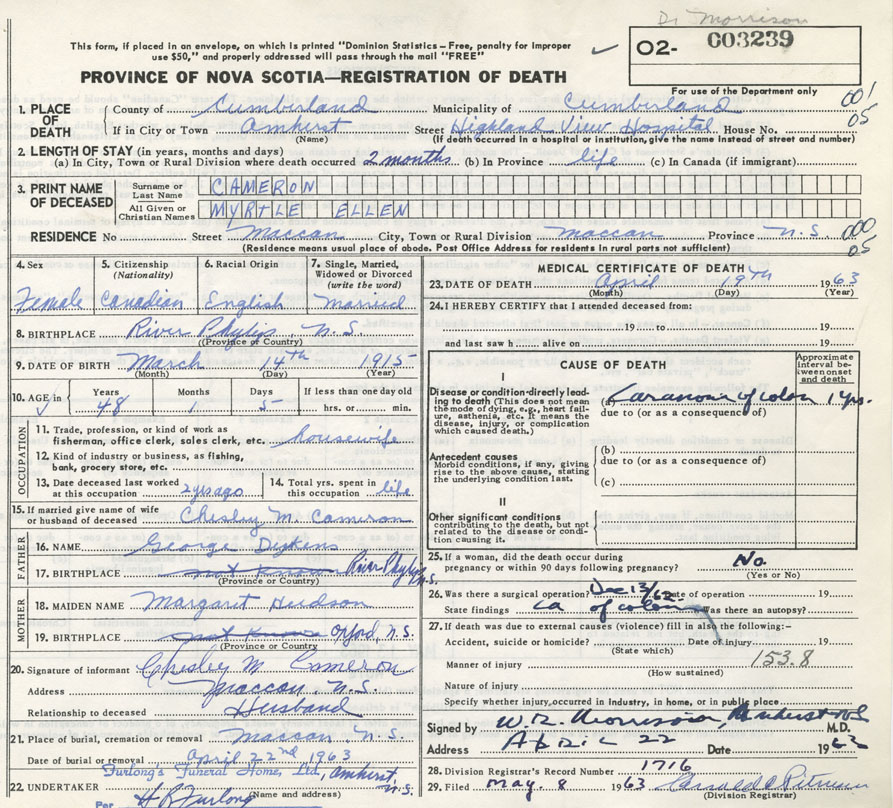 Dr Morrison
This form, if placed in an envelope, on which is printed "Dominion Statistics – Free, penalty for improper
use $50," and properly addressed will pass through the mail "FREE"
✓ O2- 003239
PROVINCE OF NOVA SCOTIA—REGISTRATION OF DEATH
For use of the Department only
1. PLACE OF DEATH
County of Cumberland Municipality of Cumberland 001
If in City or Town Amherst Street Highland View Hospital House No. 05
(Name) (If death occurred in a hospital or institution, give the name instead of street and number)
2. LENGTH OF STAY (in years, months and days)
(a) In City, Town or Rural Division where death occurred 2 months (b) In Province life (c) In Canada (if immigrant)
3. PRINT NAME OF DECEASED
Surname or Last Name CAMERON
All Given or Christian Names MYRTLE ELLEN
RESIDENCE No Street Maccan City, Town or Rural Division Maccan Province N.S. 000
(Residence means usual place of abode. Post Office Address for residents in rural parts not sufficient) 05
4. Sex Female
5. Citizenship (Nationality) Canadian
6. Racial Origin English
7. Single, Married, Widowed or Divorced (write the word) Married
8. BIRTHPLACE River Phylip, N.S.
(Province or Country)
9. DATE OF BIRTH March 14th 1915
(Month) (Day) (Year)
10. AGE in Years 48 Months 1 Days 5 If less than one day old
hrs. or min.
OCCUPATION
11. Trade, profession, or kind of work as
fisherman, office clerk, sales clerk, etc. housewife
12. Kind of industry or business, as fishing,
bank, grocery store, etc.
13. Date deceased last worked at this occupation 2 yrs ago
14. Total yrs. spent in this occupation life
15. If married give name of wife
or husband of deceased Chesley M. Cameron
FATHER
16. NAME George Dykens
17. BIRTHPLACE not known River Phylip N.S.
(Province or Country)
MOTHER
18. MAIDEN NAME Margaret Hudson
19. BIRTHPLACE not known Oxford, N.S.
(Province or Country
20. Signature of informant Chesley M Cameron
Address Maccan. N.S.
Relationship to deceased Husband
21. Place of burial, cremation or removal Maccan, N.S.
Date of burial or removal April 22nd 1963
Furlong's Funeral Home, Ltd, Amherst, N.S.
22. UNDERTAKER (Name and address)
Per H R Furlong
MEDICAL CERTIFICATE OF DEATH
23. DATE OF DEATH April 19th 1963
(Month) (Day) (Year)
24. I HEREBY CERTIFY that I attended deceased from:
19 to 19
and last saw h alive on 19
CAUSE OF DEATH
Approximate interval between onset and death
I
Disease or condition directly lead-
ing to death (This does not mean
the mode of dying, e.g., heart fail-
ure, asthenia, etc. It means the
disease, injury, or complication
which caused death.)
of colon 1 yrs.
due to (or as a consequence of)
Antecedent causes
Morbid conditions, if any, giving
rise to the above cause, stating
the underlying condition last.
(b)
due to (or as a consequence of)
(c)
II
Other significant conditions
contributing to the death, but not
related to the disease or condi-
tion causing it.
25. If a woman, did the death occur during
pregnancy or within 90 days following pregnancy? No.
(Yes or No)
26. Was there a surgical operation? Dec 13/62 Date of operation 19
State findings ca of colon Was there an autopsy?
27. If death was due to external causes (violence) fill in also the following:–
Accident, suicide or homicide? Date of injury 19
(State which)
Manner of injury 153.8
(How sustained)
Nature of injury
Specify whether injury occurred in Industry, in home, or in public place
Signed by W. R. Morrison, Amherst NS M.D.
Address April 22 Date 1963
28. Division Registrar's Record Number 1716
29. Filed May. 8 1963
(Division Registrar)